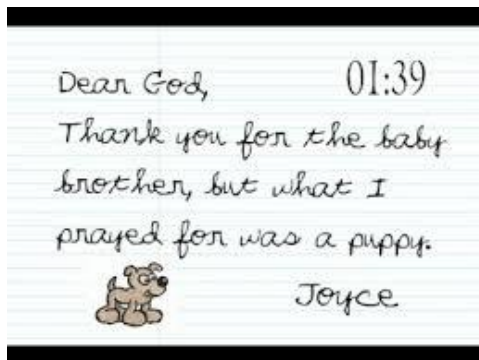 Dear God,
01:39
Thank you for the baby
brother, but what I
prayed for was a puppy.
Joyce